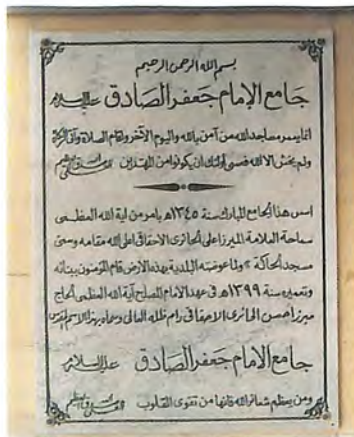 بسم الله الرحمن الرحيم
جامع الإمام جعفر الصادق عليه السلام
انما يعمر مساجد الله من آمن بالله واليوم الآخر واقام الصلاة وآتى الزكاة
ولم يخش الا الله فعسى اولئك ان يكونوا من المهتدين صدق الله العلي العظيم
اسس هذا الجامع المبارك سنة ١٣٤٥هـ بامر من آية الله العظمى
سماحة العلامة الميرزا علي الحائري الاحقاقي اعلى الله مقامه وسمي
مسجد الحاكة ولما عوضته البلدية بهذه الارض قام المؤمنون ببنائه
وتعميره سنة ١٣٩٩هـ في عهد الامام المصلح آية الله العظمى الحاج
ميرزا حسن الحائري الاحقاقي دام ظله العالي وسماه بهذا الاسم
جامع الإمام جعفر الصادق عليه السلام
ومن يعظم شعائر الله فانها من تقوى القلوب صدق الله العلي العظيم